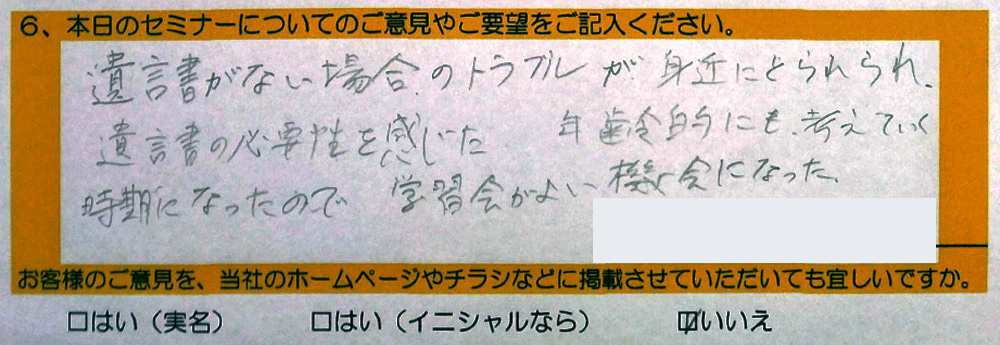 6、本日のセミナーについてのご意見やご要望をご記入ください。
遺言書がない場合のトラブルが身近にとられられ、
遺言書の必要性を感じた 年齢的にも考えていく
時期になったので 学習会がよい機会になった。
お客様のご意見を、当社のホームページやチラシなどに掲載させていただいても宜しいですか。
□はい（実名） □はい（イニシャルなら） ☑いいえ